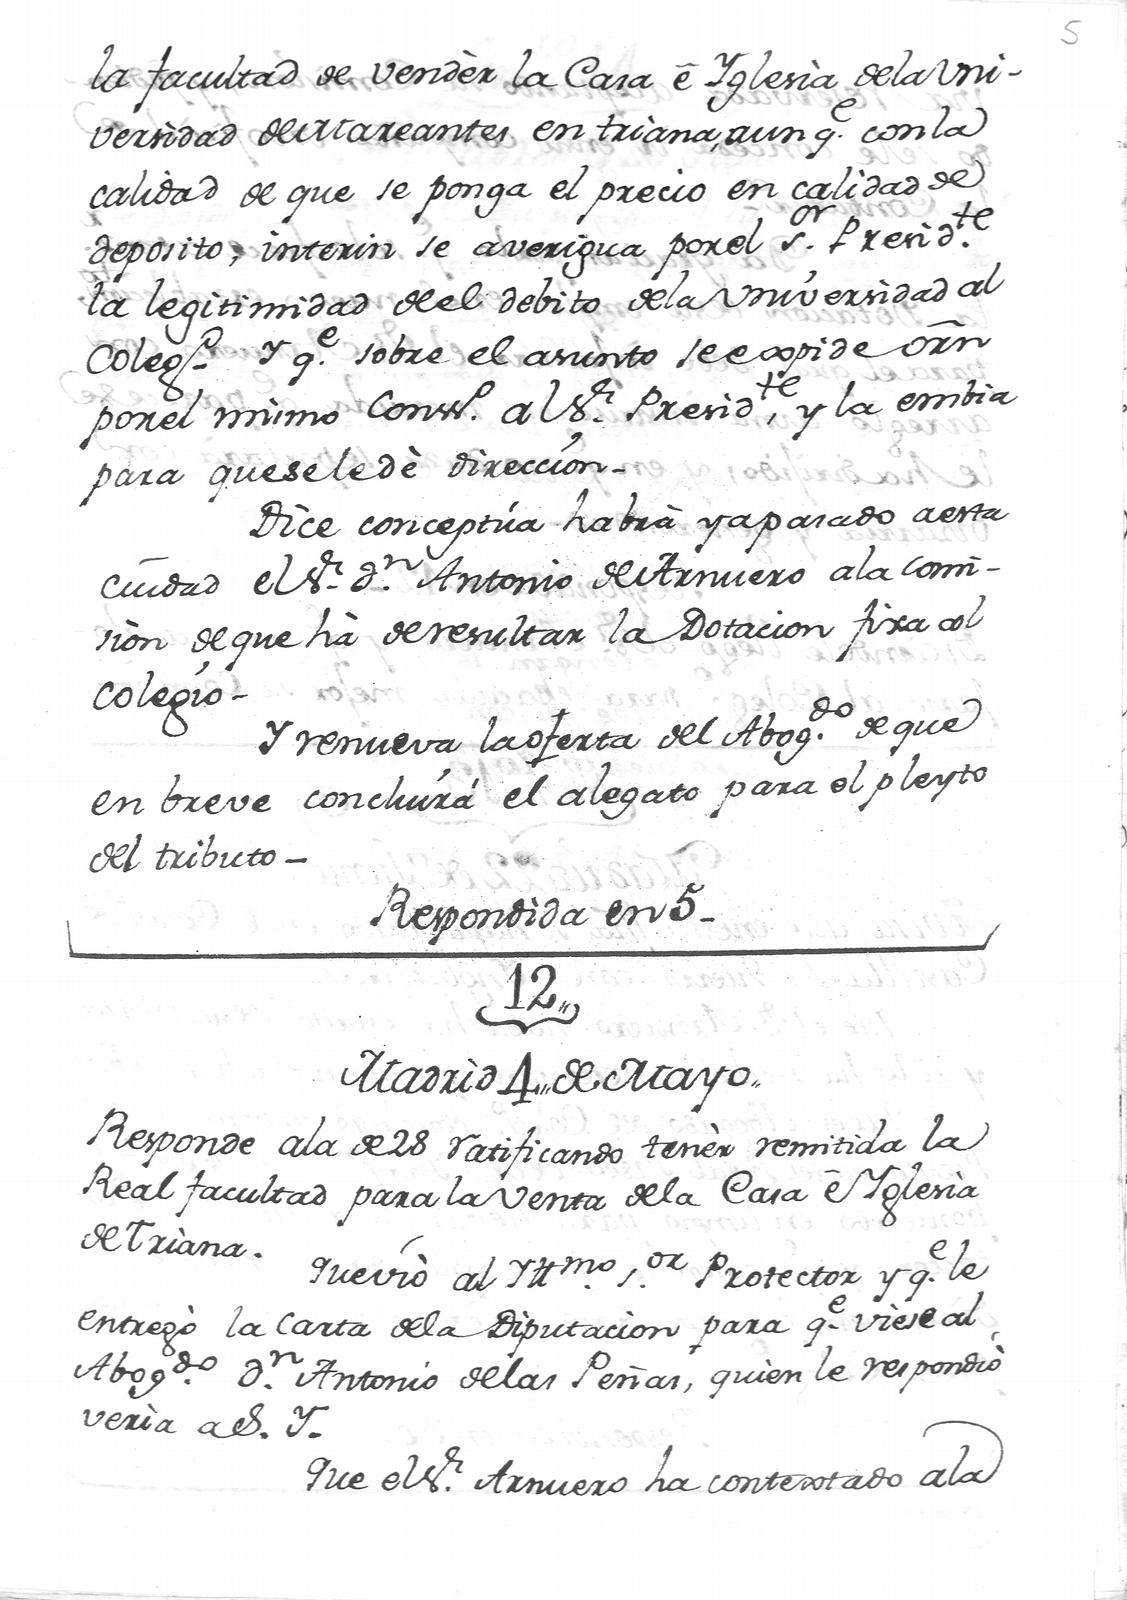 5
la facultad de vendèr la Casa ē Yglesia dela Uni-
versidad de Mareantes en triana, aun q.e con la
calidad de que se ponga el precio en calidad de
deposito, interin se averigua por el s.or Presid.te
la legitimidad de el debito de la Universidad al
Coleg.o Y q.e sobre el asunto se expide orñ
por el mismo Cons.o al S.r Presid.te, y la embia
para que se le dè direccion-
Dice conceptúa habrà ya pasado a esta
ciudad el S.r d.n Antonio de Arnuero a la comi-
siòn de que hà de resultar la Dotacion fixa al
colegio-
Y renueva la oferta del Abog.do de que
en breve concluirá el alegato para el pleyto
del tributo-
Respondida en 5-
12,,
Madrid 4,, de Mayo,,
Responde a la de 28 ratificando tenèr remitida la
Real facultad para la Venta de la Casa ē Yglesia
de Triana.
Que viò al Yll.mo s.or Protector y q.e le
entregò la Carta de la Diputacion para q.e viese al
Abog.do d.n Antonio de las Peñas, quien le respondiò
veria a S. Y.
Que el S.r Arnuero ha contextado a la